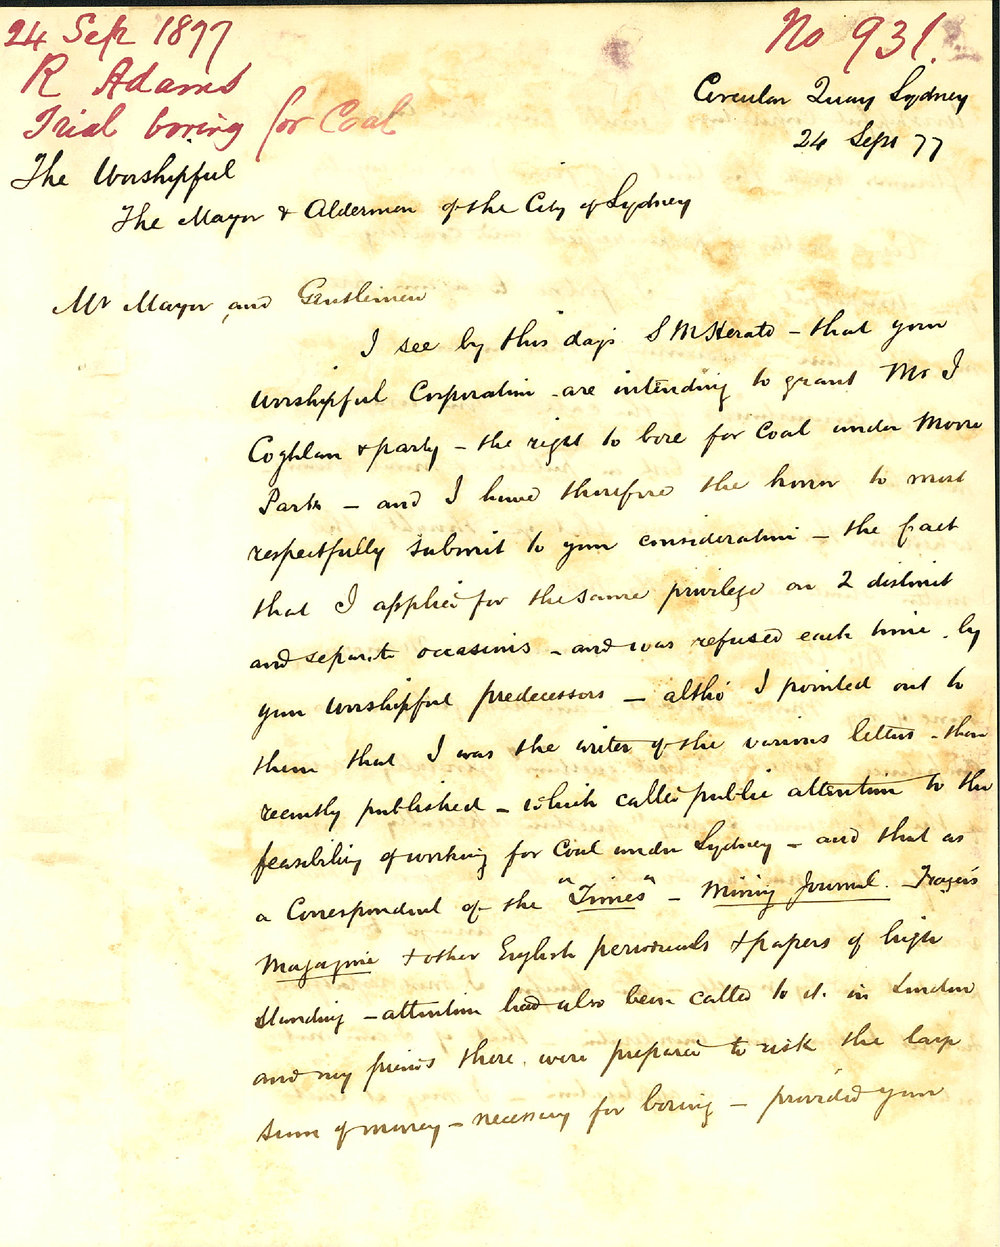 24 Sep 1877
No 931.
R Adams
Trial boring for Coal
Circular Quay Sydney
24 Sept 77
The Worshipful
The Mayor & Aldermen of the City of Sydney
Mr Mayor and Gentlemen
I see by this days S M Herald – that your
Worshipful Corporation – are intending to grant Mr J
Coghlan & party – the right to bore for Coal under Moore
Park – and I have therefore the honor to most
respectfully submit to your consideration – the fact
that I applied for the same privilege on 2 distinct
and separate occasions – and was refused each time – by
your Worshipful predecessors – altho' I pointed out to
them that I was the writer of the various letters – then
recently published – which called public attention to the
feasibility of working for Coal under Sydney – and that as
a Correspondent of the "Times" – Mining Journal. Frazer's
Magazine & other English periodicals & papers of high
standing – attention had also been called to it in London
and my friends there were prepared to risk the large
sum of money – necessary for boring – provided your